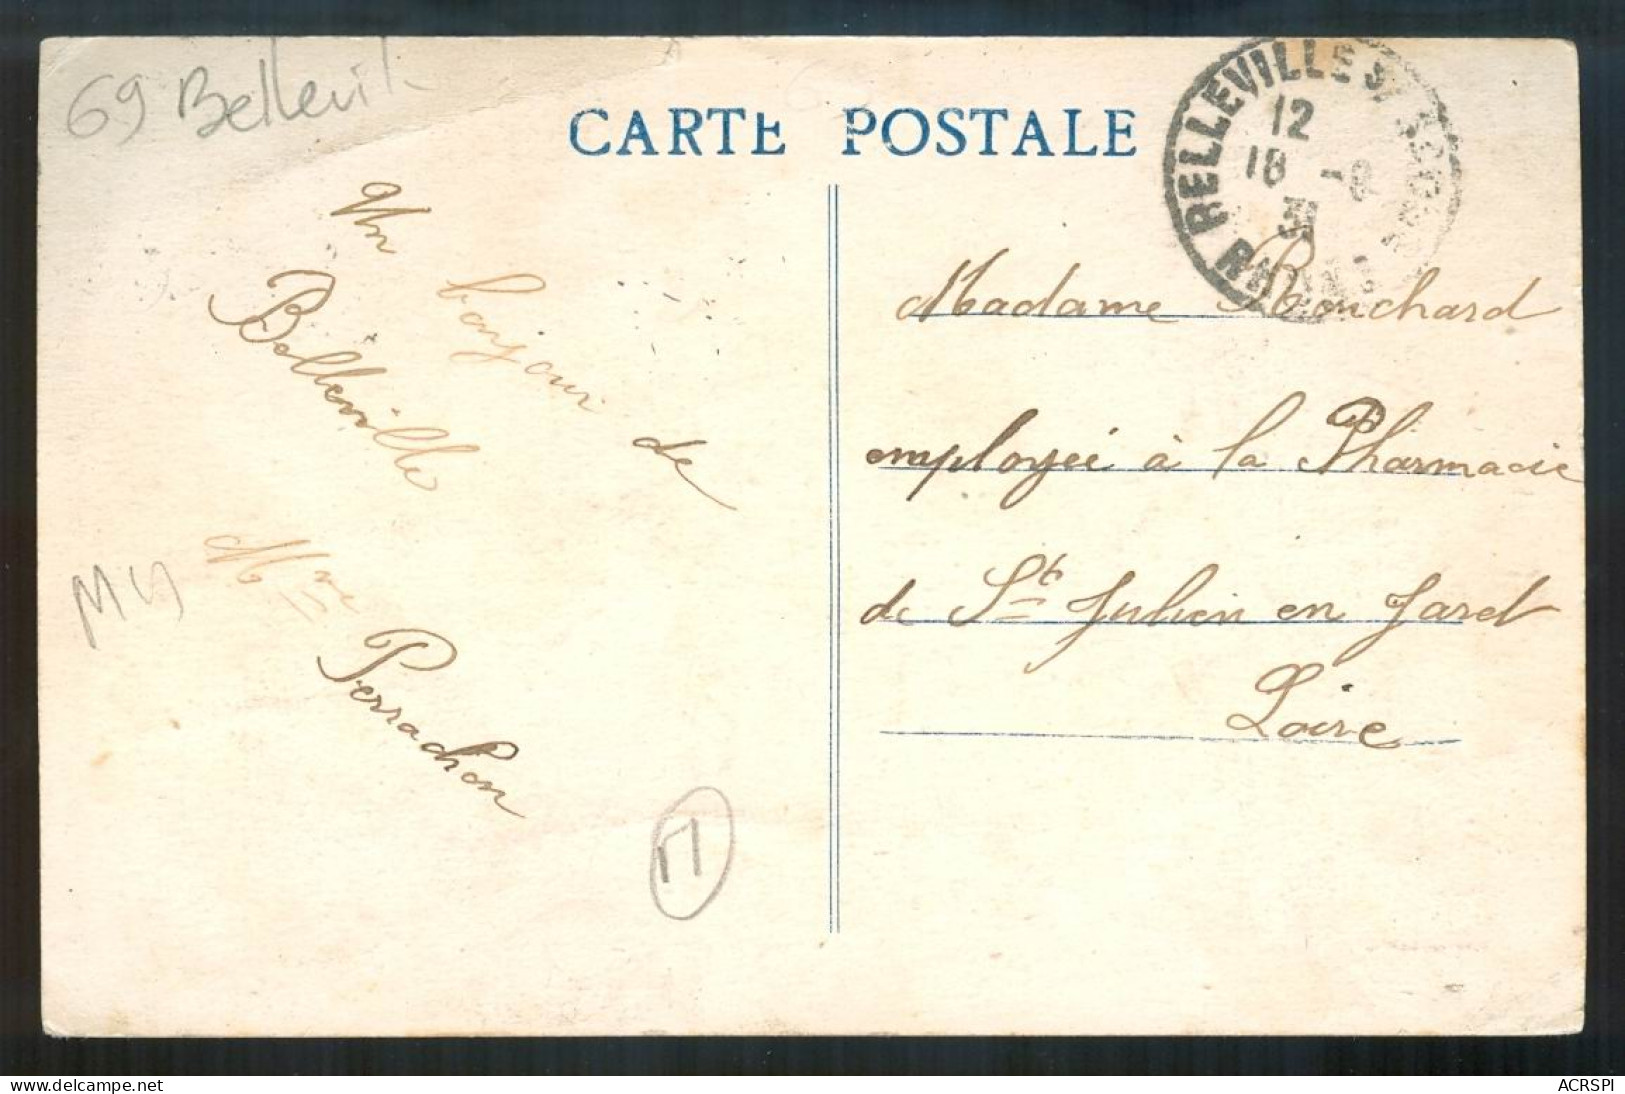 69 Bellevil
CARTE POSTALE
BELLEVILLE S/ SAONE
12
18 -8
31
RHONE
Un
bonjour de
Belleville
Mme
Perrachon
Madame Bouchard
employée à la Pharmacie
de St Julien en Jaret
Loire
delcampe.net
ACRSPI